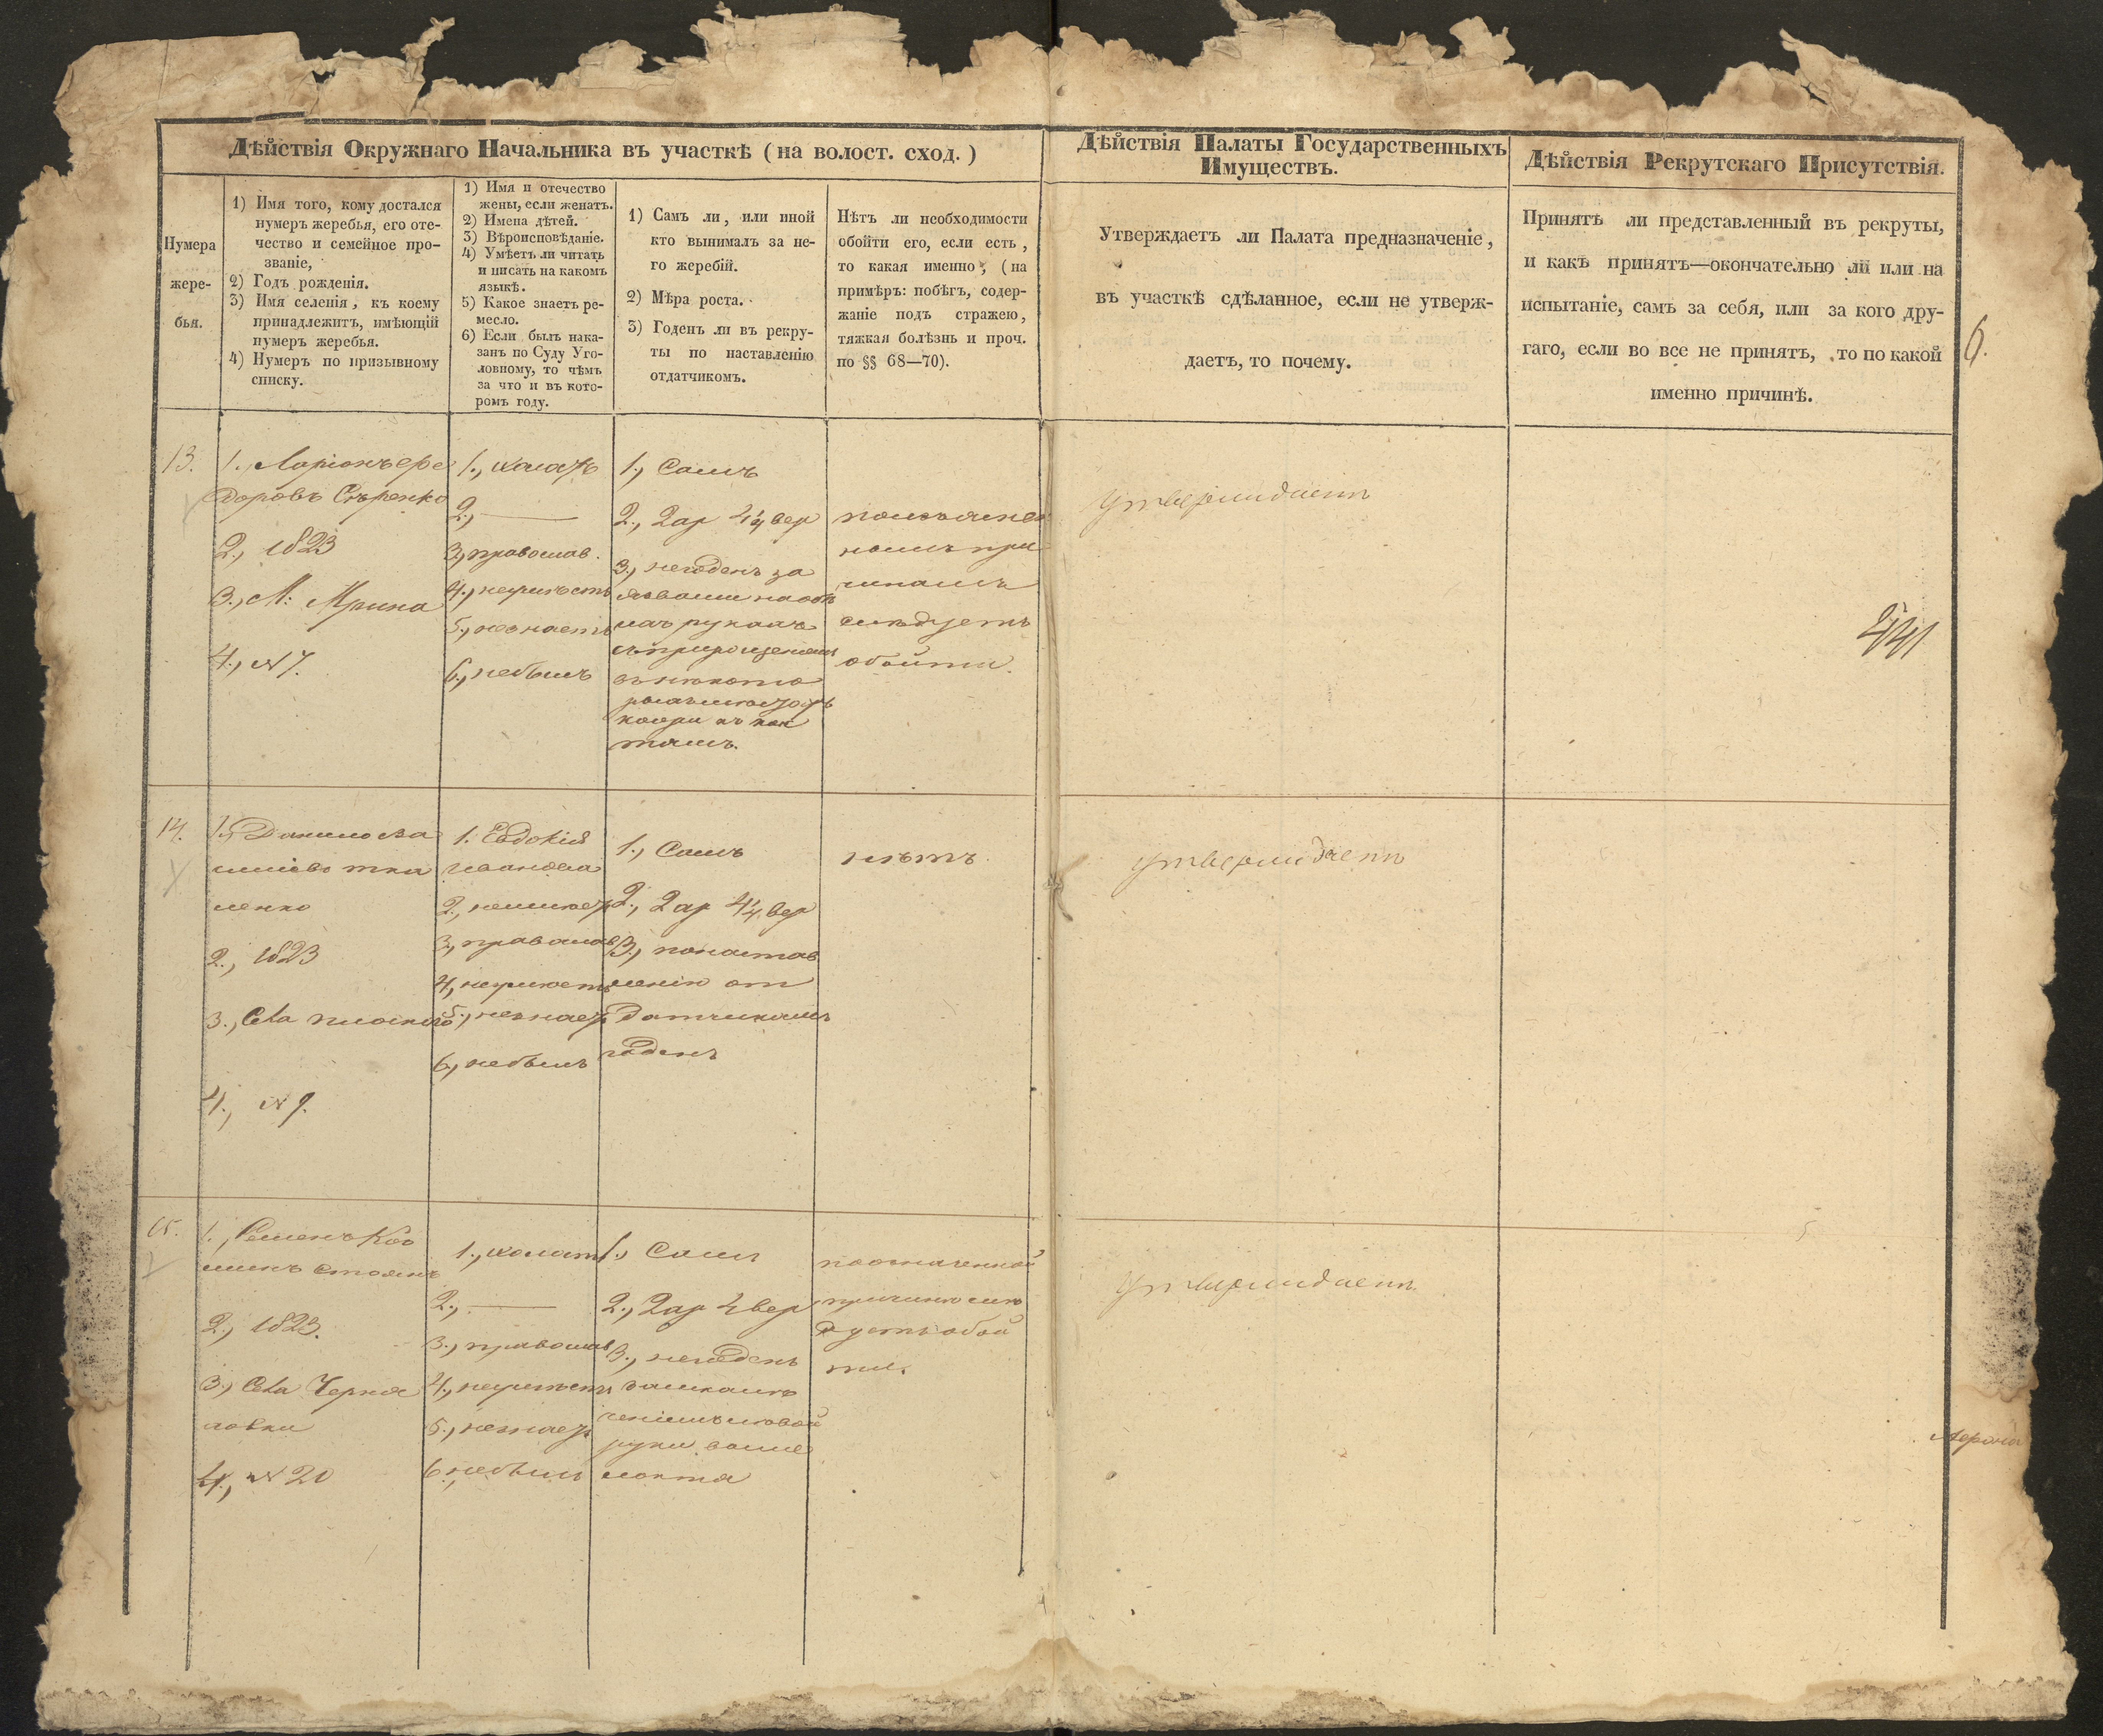 Дѣйствія Окружнаго Начальника въ участкѣ (на волост. сход.)
Нумера
жере-
бья.
1) Имя того, кому достался
нумеръ жеребья, его оте-
чество и семейное про-
званіе,
2) Годъ рожденія.
3) Имя селенія, къ коему
принадлежитъ, имѣющій
нумеръ жеребья.
4) Нумеръ по призывному
списку.
1) Имя и отечество
жены, если женатъ.
2) Имена дѣтей.
3) Вѣроисповѣданіе.
4) Умѣетъ ли читать
и писать на какомъ
языкѣ.
5) Какое знаетъ ре-
месло.
6) Если былъ нака-
занъ по Суду Уго-
ловному, то чѣмъ
за что и въ кото-
ромъ году.
1) Самъ ли, или иной
кто вынималъ за не-
го жеребій.
2) Мѣра роста.
3) Годенъ ли въ рекру-
ты по наставленію
отдатчикомъ.
Нѣтъ ли необходимости
обойти его, если есть,
то какая именно, (на
примѣръ: побѣгъ, содер-
жаніе подъ стражею,
тяжкая болѣзнь и проч.
по §§ 68—70).
Дѣйствія Палаты Государственныхъ
Имуществъ.
Утверждаетъ ли Палата предназначеніе,
въ участкѣ сдѣланное, если не утверж-
даетъ, то почему.
Дѣйствія Рекрутскаго Присутствія.
Принятъ ли представленный въ рекруты,
и какъ принятъ—окончательно ли или на
испытаніе, самъ за себя, или за кого дру-
гаго, если во все не принятъ, то по какой
именно причинѣ.
6.
13.
1., Ларіонъ Фе
доровъ Сѣренко
2., 1823
3., М: Мрина
4., N 7.
1., холостъ
2., —
3., православ.
4., неумѣетъ
5., незнаетъ
6., небылъ
1., Самъ
2., 2 ар 4¼ вер
3., негоденъ за
кожи къ кос
тямъ.
причинамъ
слѣдуетъ
обойти.
утверждаетъ
441
14.
1., Данило Ва
ленко
2., 1823
3., Села Плоского
4., N 9.
1. Евдокія
Иванова
2., неимѣетъ
3., православ
4., неумѣетъ
5., незнаетъ
6., небылъ
1., Самъ
2., 2 ар 4¼ вер
3., понастав
ленію от
датчикамъ
годенъ
нѣтъ
утверждаетъ
15.
1., Семенъ Коз
минъ Стоянъ
2., 1823.
3., Села Черня
ховки
4., N 20
1., холостъ
2., —
3., православ
4., неумѣетъ
5., незнаетъ
6., небылъ
1., Самъ
2., 2 ар 4 вер
3., негоденъ
ченіемъ лѣвой
руки выше
локтя
поозначенной
причинѣ слѣ
дуетъ обой
ти.
утверждаетъ